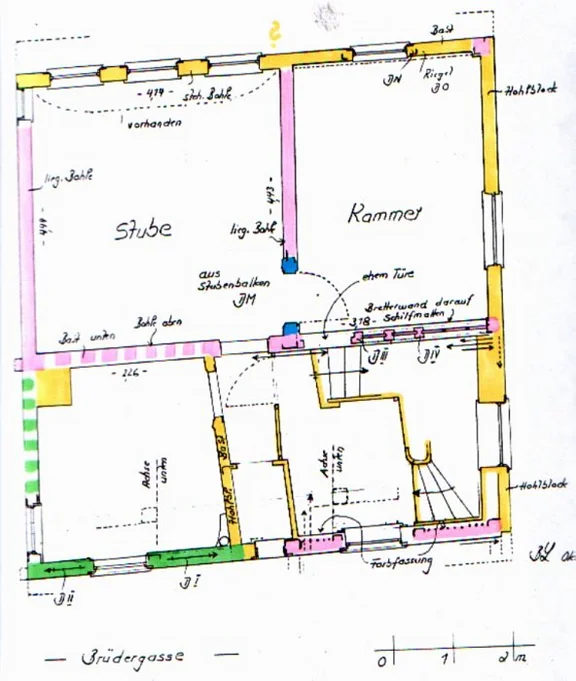 ?
Bast
- 474 -
steh. Bohle
BN
Riegel
BO
Hohlblock
vorhanden
lieg. Bohle
Stube
Kammer
- 443 -
lieg. Bohl
aus
Stubenbalken
BM
ehem Türe
Bretterwand darauf
- 318 - Schilfmatten
Bast unten
Bohle oben
B III
B IV
- 226 -
Achse
unten
Bast
Hohlbl
Achse
unten
Hohlblock
Farbfassung
B II
B I
BL
Brüdergasse
0 1 2 m